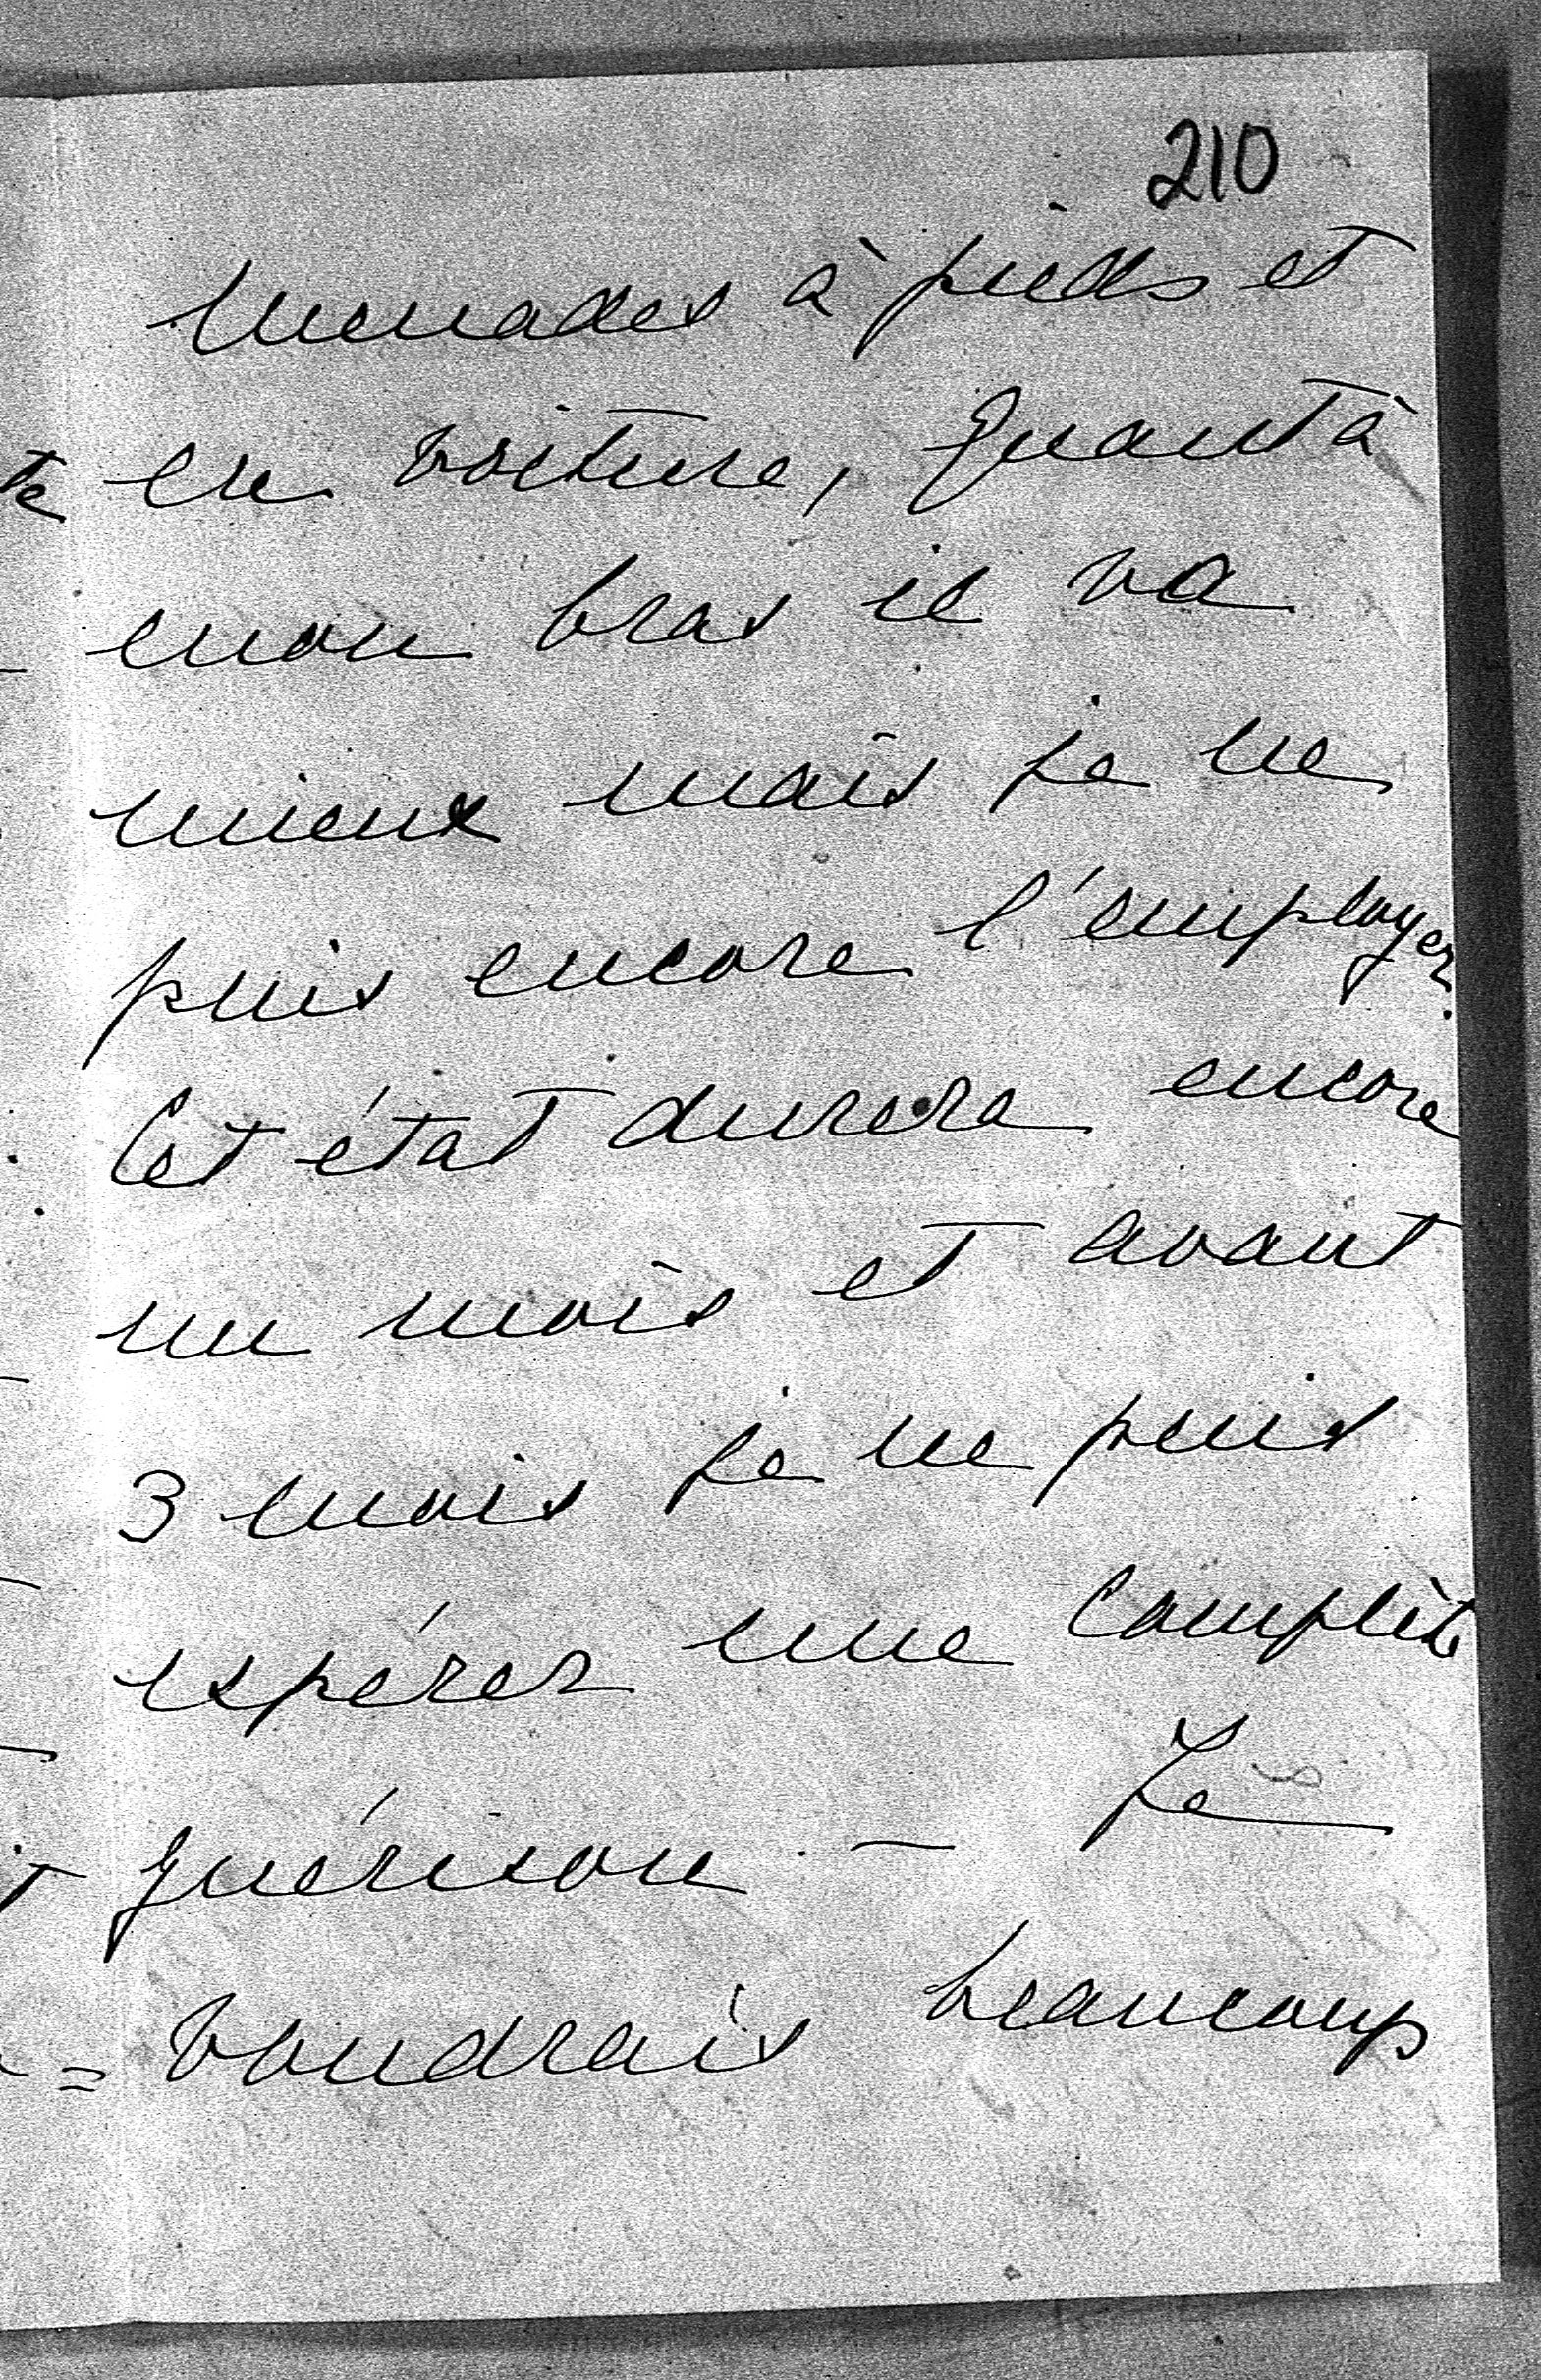 210
menades à pieds et
en voiture, quant à
mon bras il va
mieux mais je ne
puis encore l'employer.
Cet état durera encore
un mois et avant
3 mois je ne puis
espérer une complète
guérison. — Je
voudrais beaucoup